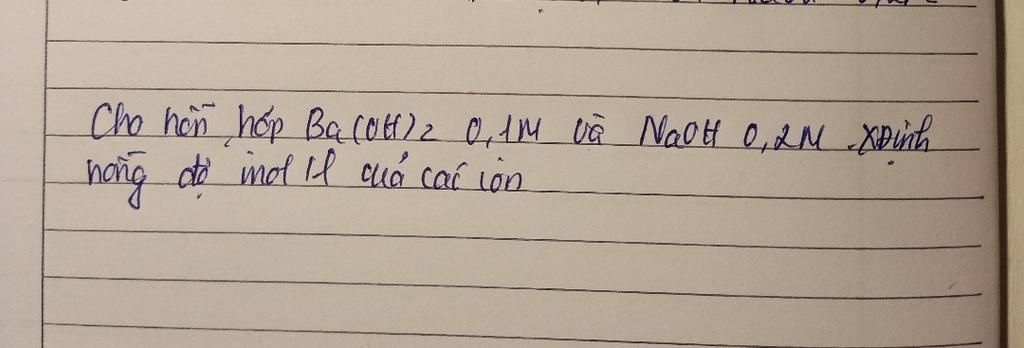 Cho hỗn hợp Ba(OH)2 0,1M và NaOH 0,2M. XĐịnh
nồng độ mol/l của các ion